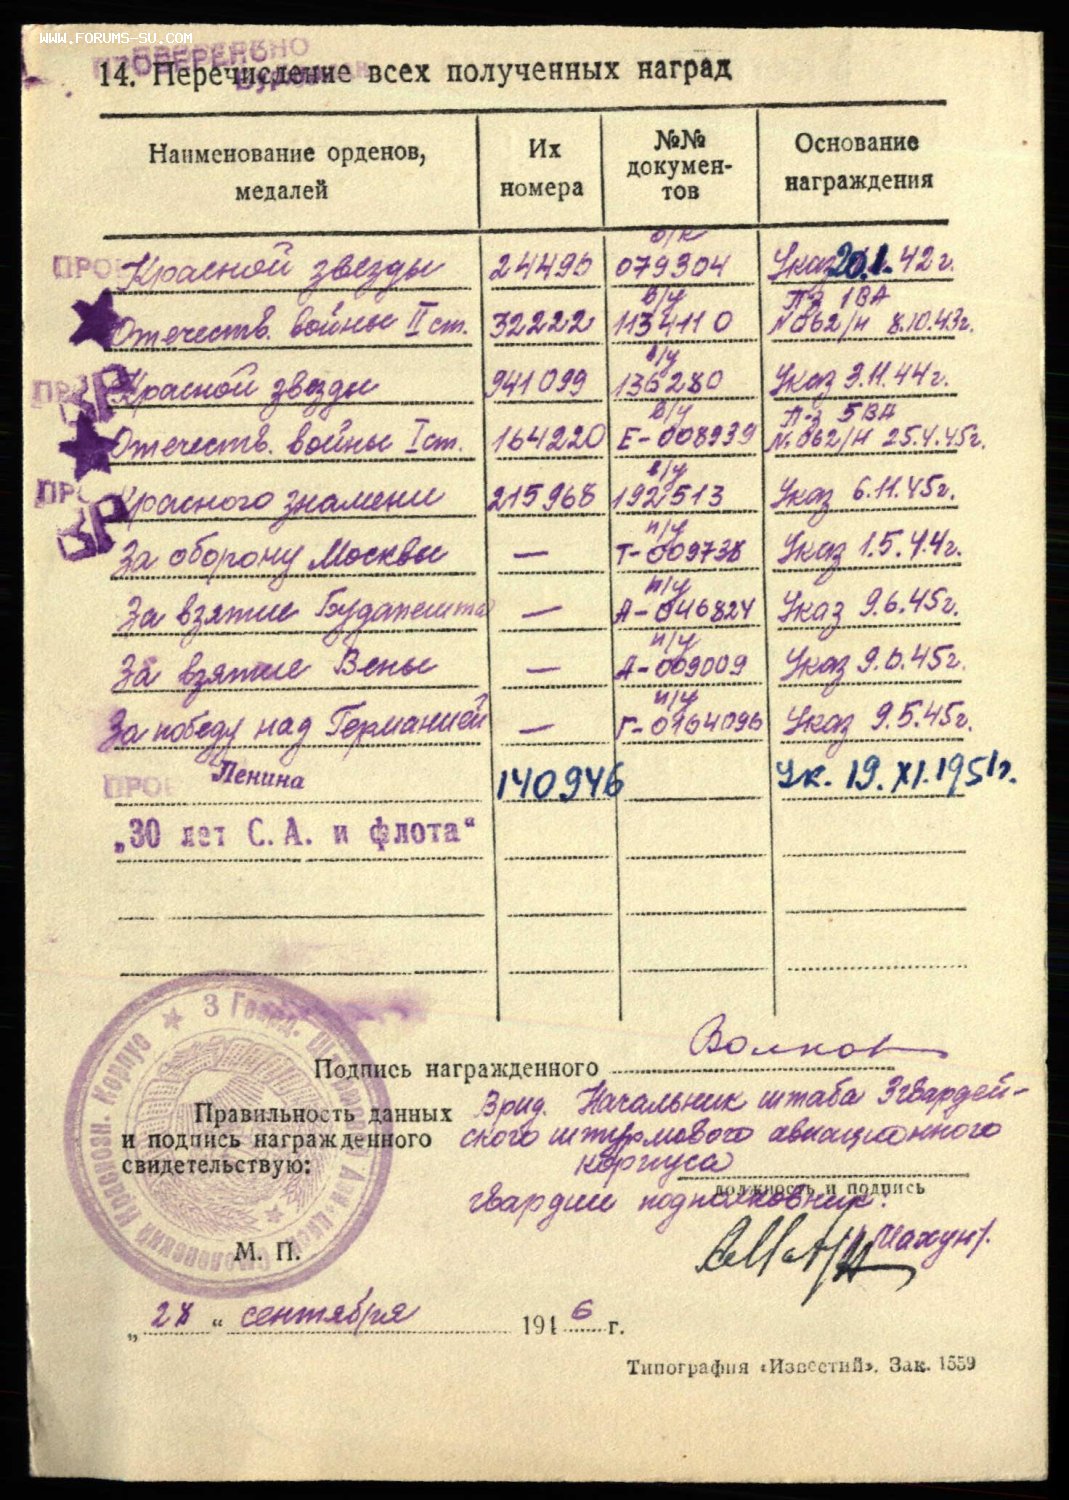 WWW.FORUMS-SU.COM
ПРОВЕРЕНО
14. Перечисление всех полученных наград
Наименование орденов, медалей Их номера №№ документов Основание награждения
Красной звезды 24490 о/к 079304 Указ 20.1.42г.
Отечеств. войны II ст. 32222 в/у 1134110 П-з 1ВА №062/н 8.10.43г.
Красной звезды 941099 в/у 136280 Указ 3.11.44г.
Отечеств. войны I ст. 164220 в/у Е-008939 П-з 5ВА №062/н 25.4.45г.
Красного знамени 215968 в/у 192513 Указ 6.11.45г.
За оборону Москвы — п/у Т-009738 Указ 1.5.44г.
За взятие Будапешта — п/у А-046824 Указ 9.6.45г.
За взятие Вены — п/у А-009009 Указ 9.6.45г.
За победу над Германией — п/у Г-0164096 Указ 9.5.45г.
Ленина 140946 Ук. 19.XI.1951г.
„30 лет С. А. и флота“
Подпись награжденного Волков
Правильность данных
и подпись награжденного
свидетельствую:
Врид. Начальник штаба 3 гвардей-
ского штурмового авиационного
корпуса
должность и подпись
гвардии подполковник:
/Махун/.
3 Гвард. Штурмов. Ави Смоленский Краснозн. Корпус
М. П.
„28“ сентября 1946 г.
Типография «Известий». Зак. 1559